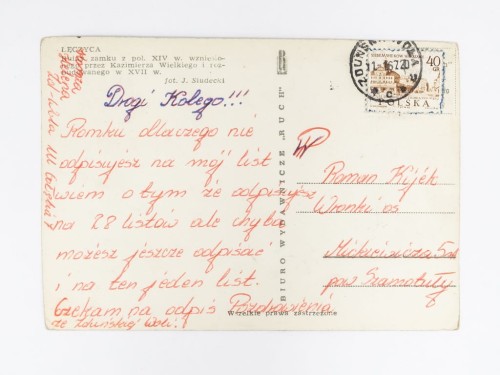 ŁĘCZYCA
zamku z poł. XIV w. wznie-
przez Kazimierza Wielkiego i roz-
w XVII w.
fot. J. Siudecki
Drogi Kolego!!!
Romku dlaczego nie
odpisujesz na mój list
wiem o tym że odpisujesz
na 28 listów ale chyba
możesz jeszcze odpisać
i na ten jeden list.
Czekam na odpis Pozdrowienia
ze Zduńskiej Woli!
BIURO WYDAWNICZE „RUCH"
Wszelkie prawa zastrzeżone
ZDUŃSKA WOLA
40
POLSKA
Roman Kijek
Wronki os
Mickiewicza
pow Szamotuły